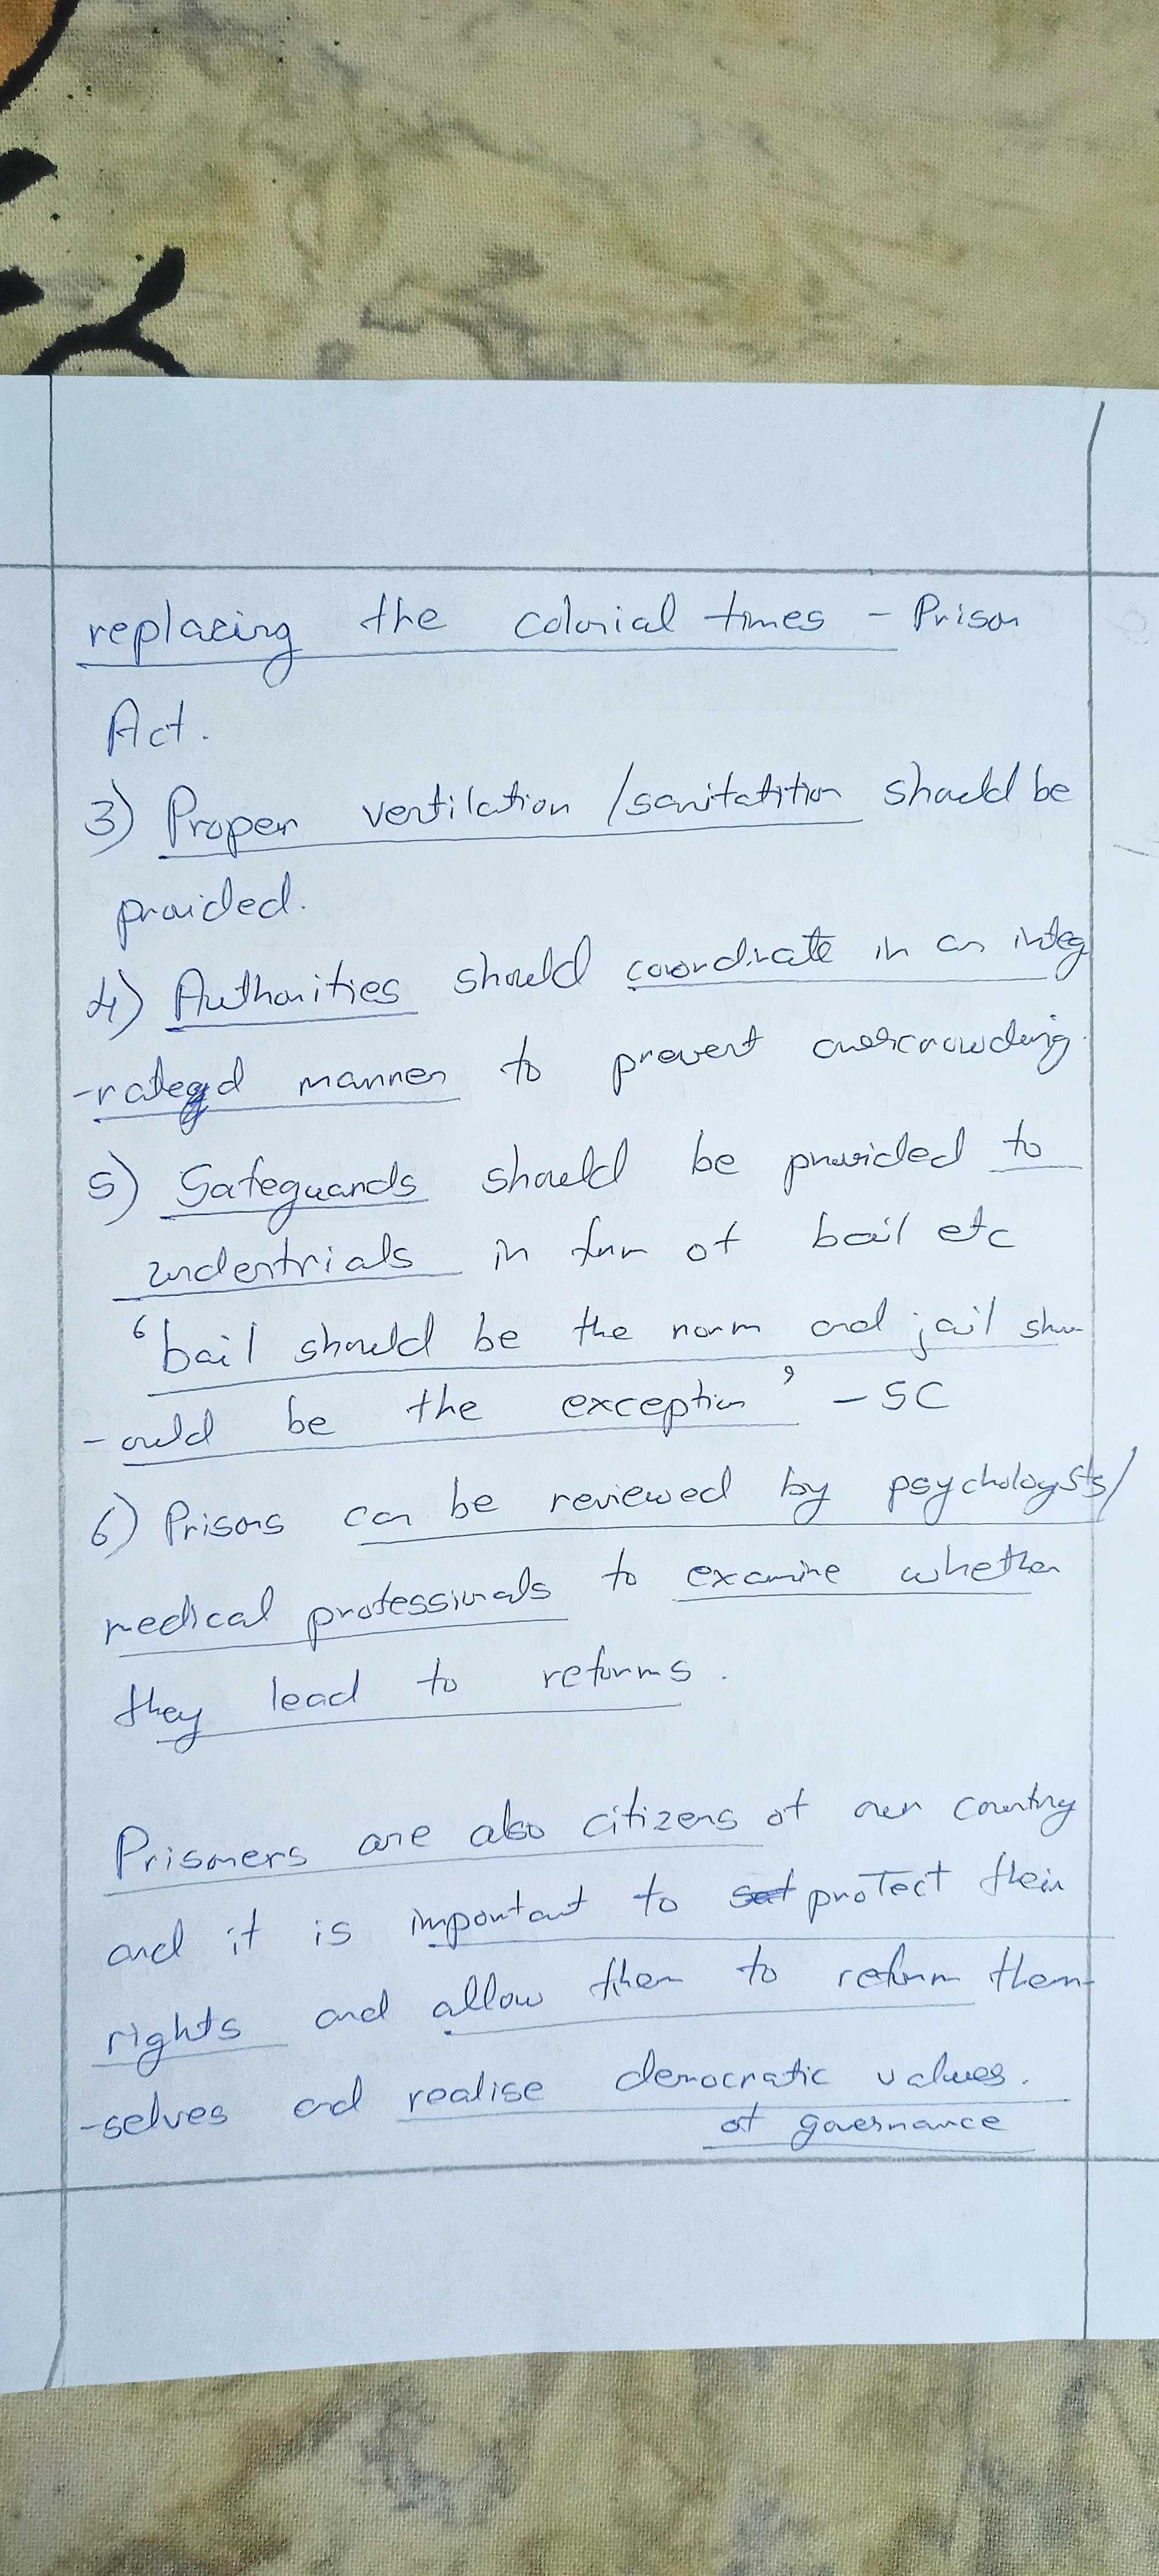 replacing the colonial times - Prison
Act.
3) Proper ventilation / sanitatition should be
provided.
4) Authorities should coordinate in an integ
-rated manner to prevent overcrowding.
5) Safeguards should be provided to
undertrials in form of bail etc
'bail should be the norm and jail sho
-ould be the exception' - SC
6) Prisons can be reviewed by psychologists/
medical professionals to examine whether
they lead to reforms.
Prisoners are also citizens of our country
and it is important to protect their
rights and allow them to reform them-
-selves and realise democratic values.
of governance